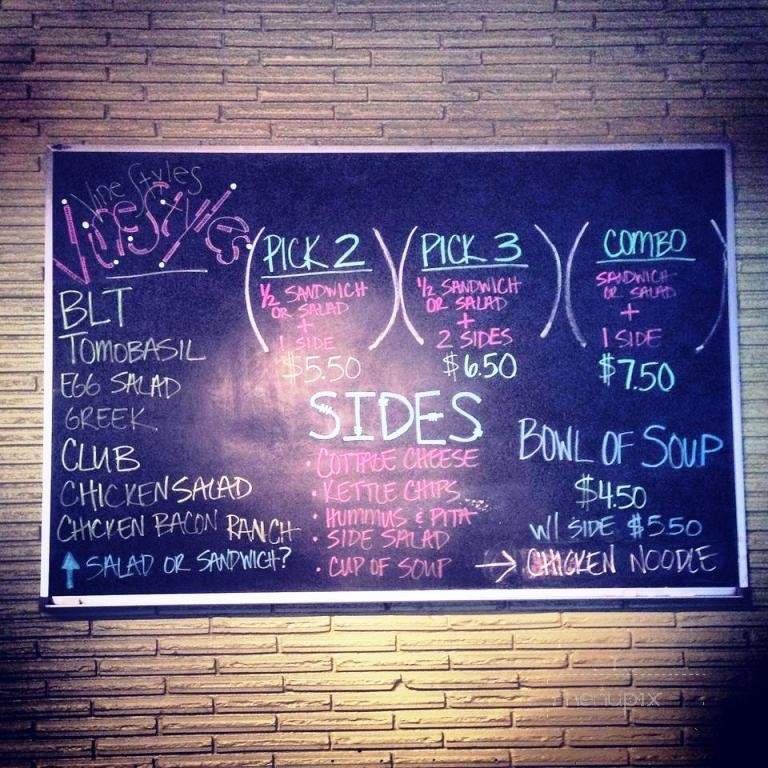 Vine Styles
VineStyles
BLT
TOMOBASIL
EGG SALAD
GREEK
CLUB
CHICKEN SALAD
CHICKEN BACON RANCH
↑ SALAD OR SANDWICH?
PICK 2
1/2 SANDWICH
OR SALAD
+
1 SIDE
$5.50
PICK 3
1/2 SANDWICH
OR SALAD
+
2 SIDES
$6.50
COMBO
SANDWICH
OR SALAD
+
1 SIDE
$7.50
SIDES
• COTTAGE CHEESE
• KETTLE CHIPS
• HUMMUS & PITA
• SIDE SALAD
• CUP OF SOUP → CHICKEN NOODLE
BOWL OF SOUP
$4.50
W/ SIDE $5.50
menupix